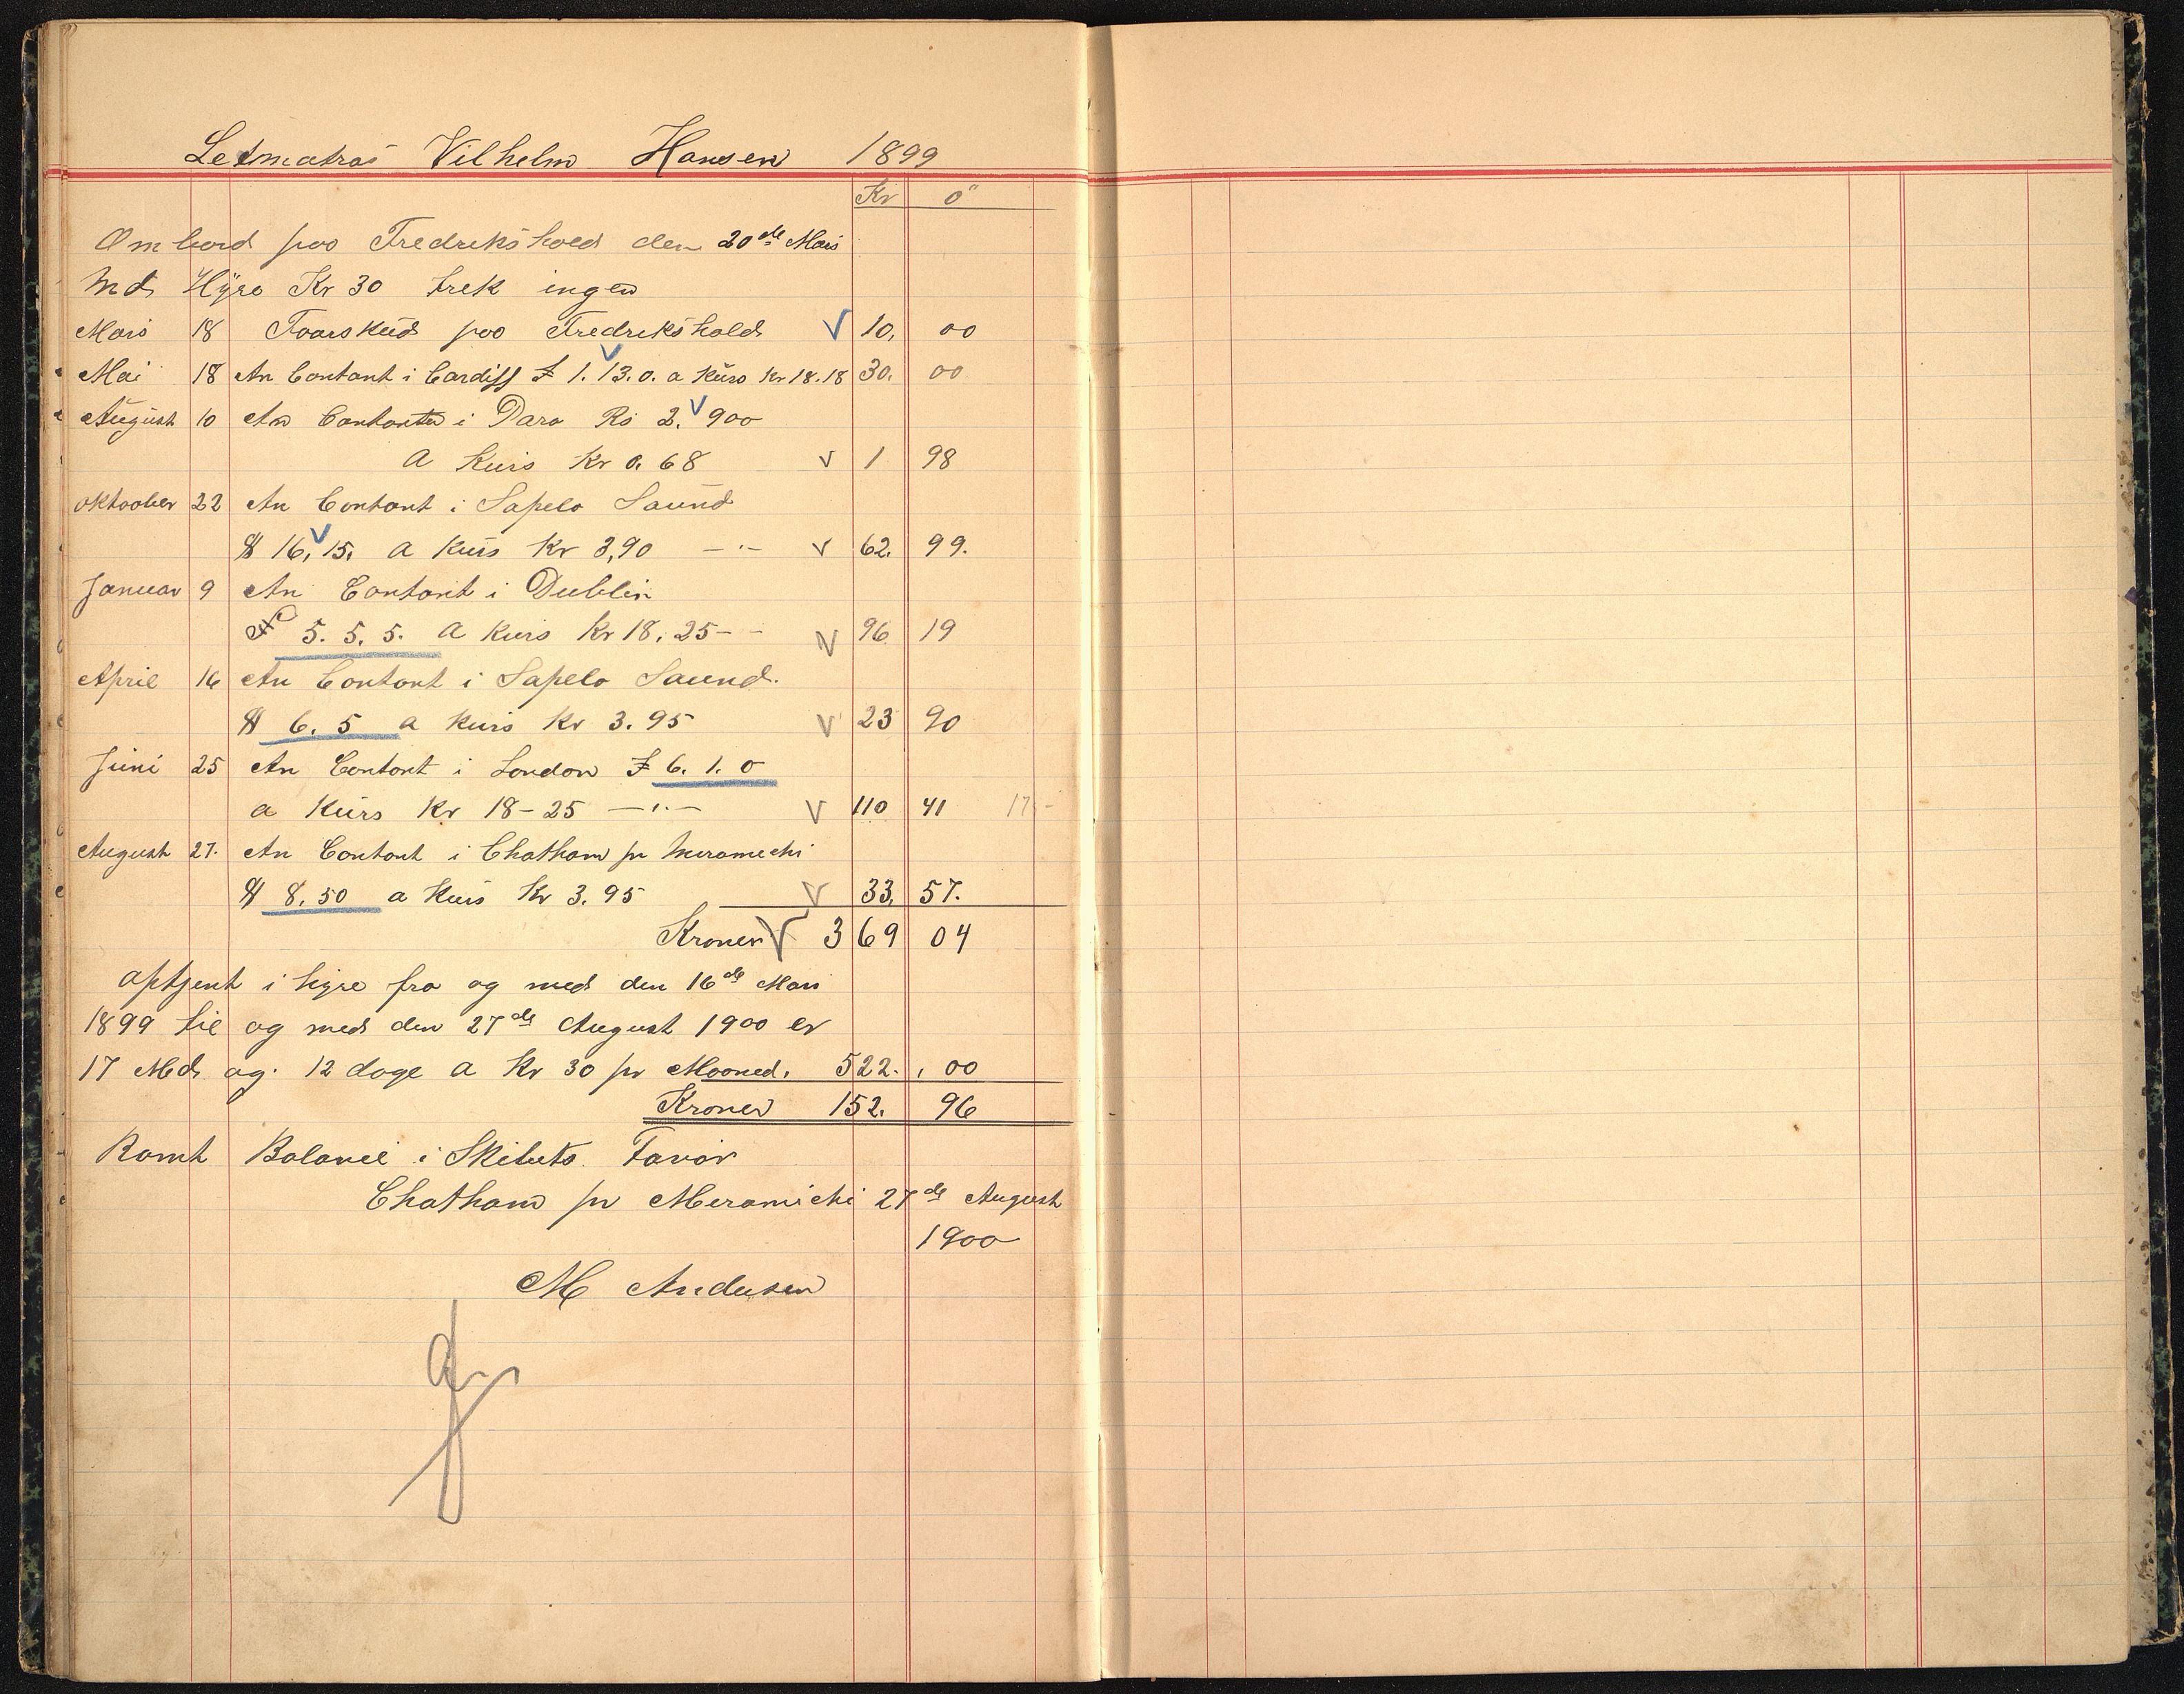 Letmatros Vilhelm Hansen 1899
Kr ö
Om bord paa Fredrikshald den 20de Mars
Md Hyre Kr 30 trek ingen
Mars 18 Foorskud paa Fredrikshald √ 10, 00
Mai 18 An Contant i Cardiff £ 1. 13. 0. a Kurs Kr 18.18 30. 00
August 10 An Contanta i Para Rs 2. 900
a Kurs Kr 0. 68 √ 1 98
Oktoober 22 An Contant i Sapelo Saund
$ 16, 15. a Kurs Kr 3,90 — " — √ 62. 99.
Januar 9 An Contant i Dublin
£ 5. 5. 5. a Kurs Kr 18. 25 - - √ 96 19
April 16 An Contant i Sapelo Saund.
$ 6. 5 a Kurs Kr 3. 95 √ 23 90
Juni 25 An Contant i London £ 6. 1. 0
a Kurs Kr 18-25 — " — √ 110 41
August 27. An Contant i Chatham pr Meramechi
$ 8. 50 a Kurs Kr 3. 95 √ 33, 57.
Kroner √ 369 04
Optjent i hyre fra og med den 16de Mars
1899 til og med den 27de August 1900 er
17 Md og 12 dage a Kr 30 pr Mooned. 522. 00
Kroner 152. 96
Ramt Balance i Skibets Favör
Chatham pr Meramichi 27de August
1900
M Andersen